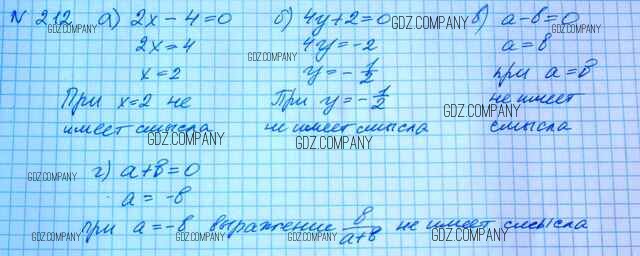 N 212 а) 2x - 4 = 0 б) 4y + 2 = 0 в) a - в = 0
2x = 4 4y = -2 a = в
x = 2 y = - 1/2 при a = в
При x = 2 не При y = - 1/2 не имеет
имеет смысла не имеет смысла смысла
г) a + в = 0
a = -в
при a = -в выражение в/(a+в) не имеет смысла
GDZ.COMPANY
GDZ.COMPANY
GDZ.COMPANY
GDZ.COMPANY
GDZ.COMPANY
GDZ.COMPANY
GDZ.COMPANY
GDZ.COMPANY
GDZ.COMPANY
GDZ.COMPANY
GDZ.COMPANY
GDZ.COMPANY
GDZ.COMPANY